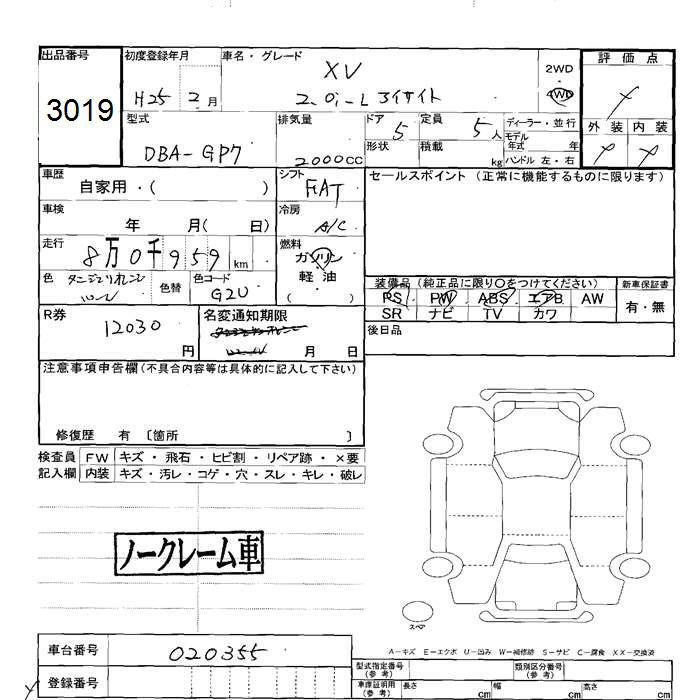 出品番号
3019
初度登録年月
H25 2月
車名・グレード
XV
2.0i-L アイサイト
2WD
4WD
評価点
外装 内装
型式
DBA-GP7
排気量
2000cc
ドア
5
形状
定員
5人
積載
kg
ディーラー・並行
モデル
年式 年
ハンドル 左・右
車歴
自家用・( )
シフト
FAT
セールスポイント (正常に機能するものに限ります)
車検
年 月( 日)
冷房
A/C
走行
8万0千959km
燃料
ガソリン
軽油
( )
色
色替
色コード
G2U
装備品 (純正品に限り〇をつけてください)
新車保証書
PS PW ABS エアB AW
SR ナビ TV カワ
有・無
R券
12030
円
名変通知期限
月 日
後日品
注意事項申告欄 (不具合内容等は具体的に記入して下さい)
修復歴 有 〔箇所 〕
検査員 FW キズ・飛石・ヒビ割・リペア跡・×要
記入欄 内装 キズ・汚レ・コゲ・穴・スレ・キレ・破レ
ノークレーム車
スペア
A−キズ E−エクボ U−凹み W−補修跡 S−サビ C−腐食 XX−交換済
車台番号
020355
登録番号
型式指定番号
(参考)
類別区分番号
(参考)
車庫証明用
(参考)
長さ cm
幅 cm
高さ cm